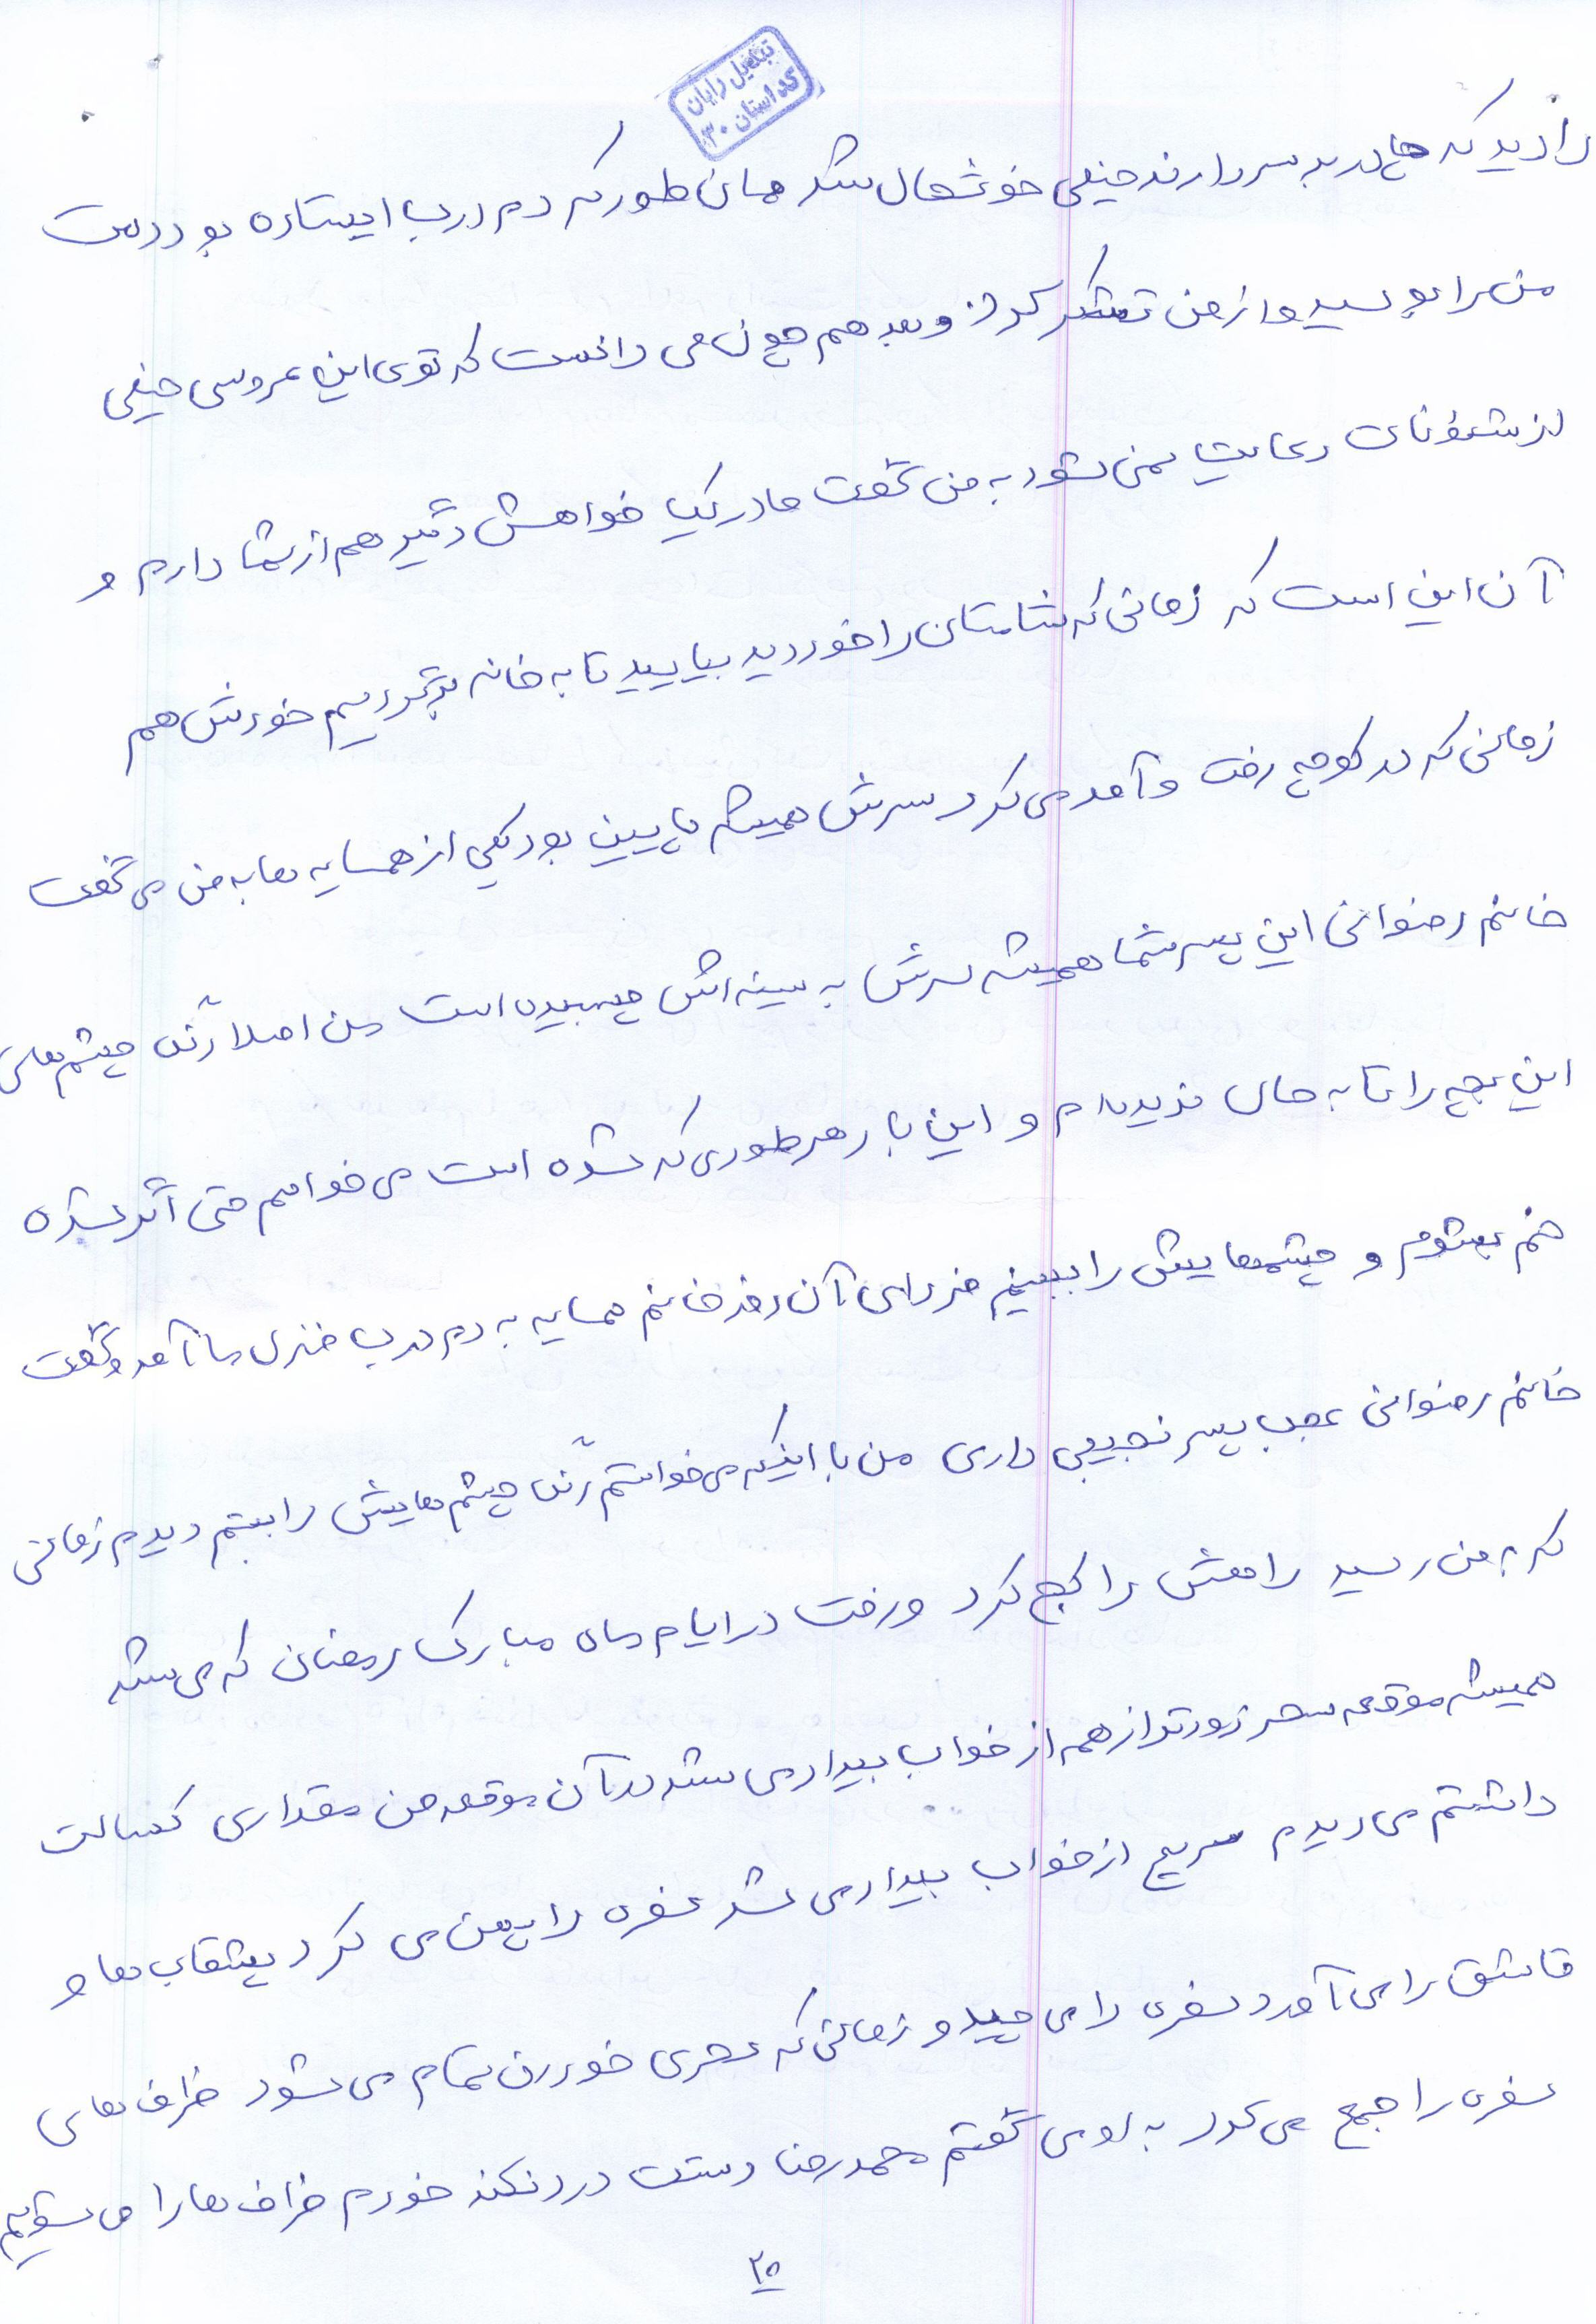 تبدیل رایان
کد استان ۳۰
را دید که چادر به سر دارند خیلی خوشحال شد همان طور که دم درب ایستاده بود دست
من را بوسید و از من تشکر کرد و بعد هم چون می دانست که توی این عروسی خیلی
از شئونات رعایت نمی شود به من گفت مادر یک خواهش دیگر هم از شما دارم و
آن این است که زمانی که شامتان را خوردید بیایید تا به خانه برگردیم خودش هم
زمانی که در کوچه رفت و آمد می کرد سرش همیشه پایین بود یکی از همسایه ها به من می گفت
خانم رضوانی این پسر شما همیشه سرش به سینه اش چسبیده است من اصلا رنگ چشم های
این بچه را تا به حال ندیده ام و این بار هر طوری که شده است می خواهم حتی اگر شده
خم بشوم و چشمهایش را ببینم فردای آن روز خانم همسایه به دم درب منزل ما آمد و گفت
خانم رضوانی عجب پسر نجیبی داری من با اینکه می خواستم رنگ چشم هایش را ببینم دیدم زمانی
که به من رسید راهش را کج کرد و رفت در ایام ماه مبارک رمضان که می شد
همیشه موقعه سحر زودتر از همه از خواب بیدار می شد در آن موقعه من مقداری کسالت
داشتم می دیدم سریع از خواب بیدار می شد سفره را پهن می کرد بشقاب ها و
قاشق را می آورد سفره را می چید و زمانی که سحری خوردن تمام می شود ظرف های
سفره را جمع می کرد به او می گفتم محمدرضا دستت درد نکند خودم ظرف ها را می شویم
۲۵